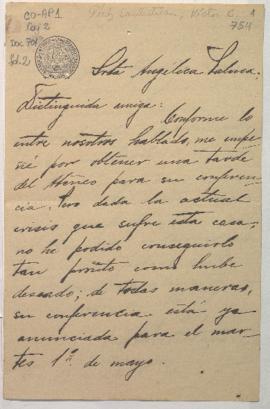 CO-AP1
Caj 2
Doc 701
754
Srta Angélica Palma.
Distinguida amiga:
Conforme lo
entre nosotros hablado, me
por obtener una tarde
del Ateneo para su conferen-
cia. Pero dada la actual
crisis que sufre esta casa,
no he podido conseguirlo
tan pronto como hube
deseado; de todas maneras,
su conferencia está ya
anunciada para el mar-
tes 1º de mayo.